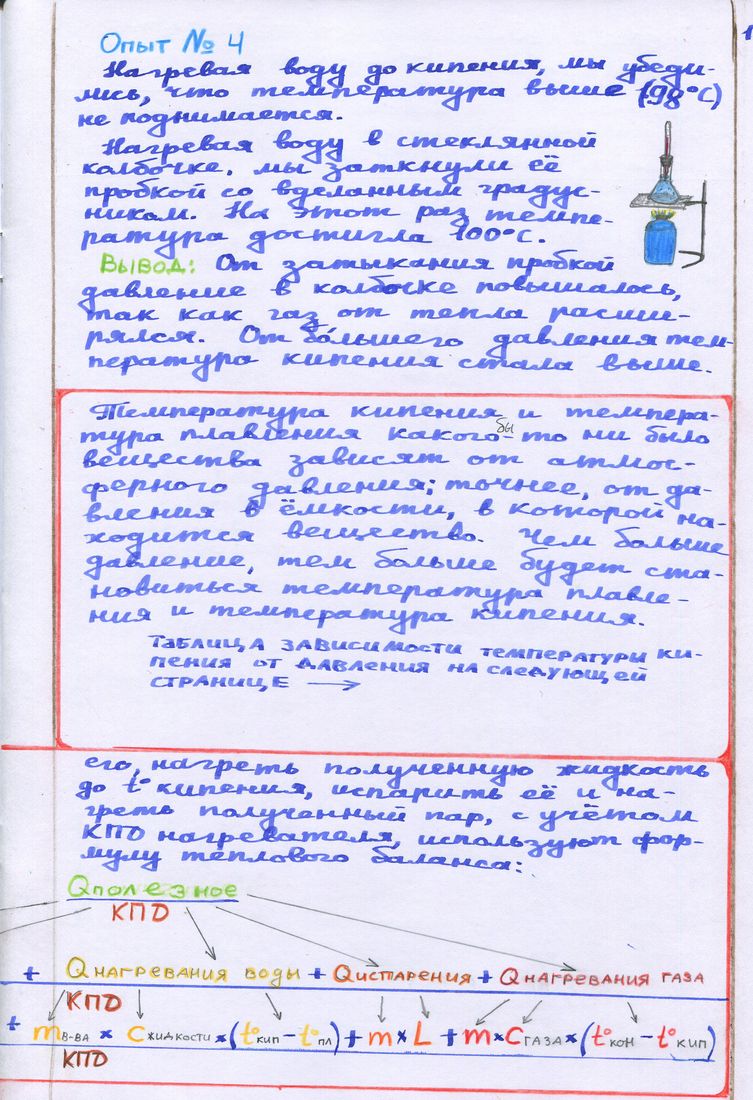 1
Опыт № 4
Нагревая воду до кипения, мы убеди-
лись, что температура выше (98°С)
не поднимается.
Нагревая воду в стеклянной
колбочке, мы заткнули её
пробкой со вделанным градус-
ником. На этот раз темпе-
ратура достигла 100°С.
Вывод: От затыкания пробкой
давление в колбочке повышалось,
так как газ от тепла расши-
рялся. От бо́льшего давления тем-
пература кипения стала выше.
Температура кипения и темпера-
тура плавления какого бы-то ни было
вещества зависят от атмос-
ферного давления; точнее, от да-
вления в ёмкости, в которой на-
ходится вещество. Чем больше
давление, тем больше будет ста-
новиться температура плавле-
ния и температура кипения.
Таблица зависимости температуры ки-
пения от давления на следующей
странице →
его, нагреть полученную жидкость
до t° кипения, испарить её и на-
греть полученный пар, с учётом
КПД нагревателя, используют фор-
мулу теплового баланса:
Qполезное
КПД
+ Qнагревания воды + Qиспарения + Qнагревания газа
КПД
+ mв-ва × Cжидкости × (t°кип − t°пл) + m × L + m × Cгаза × (t°кон − t°кип)
КПД